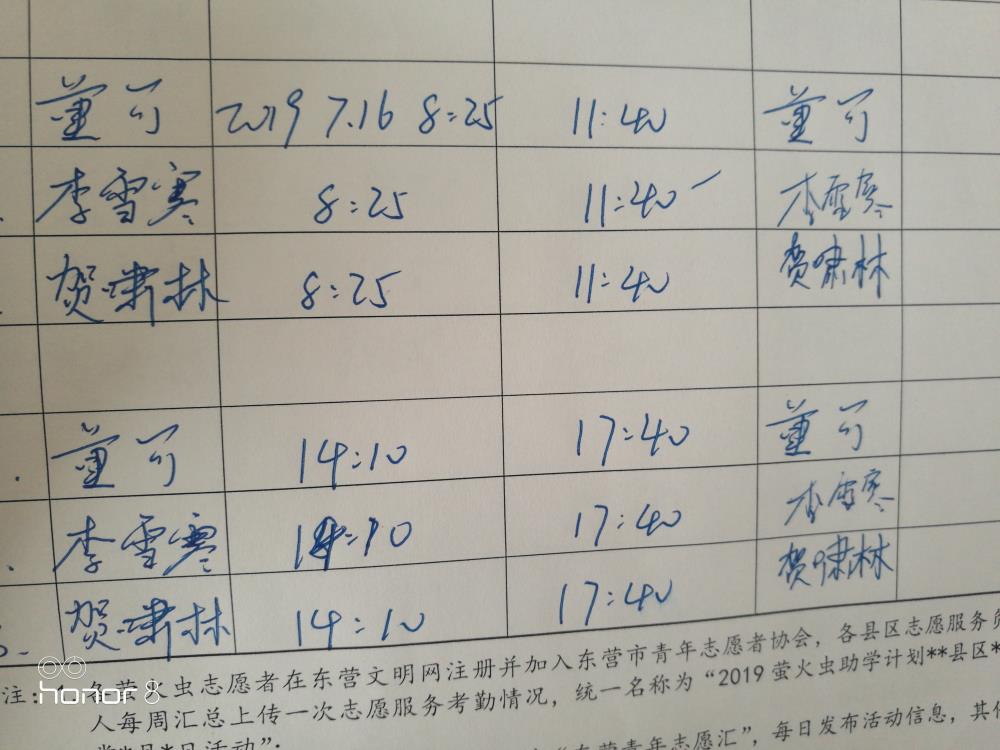 董可 2019 7.16 8:25 11:40 董可
李雪寒 8:25 11:40 李雪寒
贺啸林 8:25 11:40 贺啸林
董可 14:10 17:40 董可
李雪寒 14:10 17:40 李雪寒
贺啸林 14:10 17:40 贺啸林
注：1.各萤火虫志愿者在东营文明网注册并加入东营市青年志愿者协会，各县区志愿服务
人每周汇总上传一次志愿服务考勤情况，统一名称为“2019萤火虫助学计划**县区*
月*日活动”；
青年志愿汇”，每日发布活动信息，其
honor 8